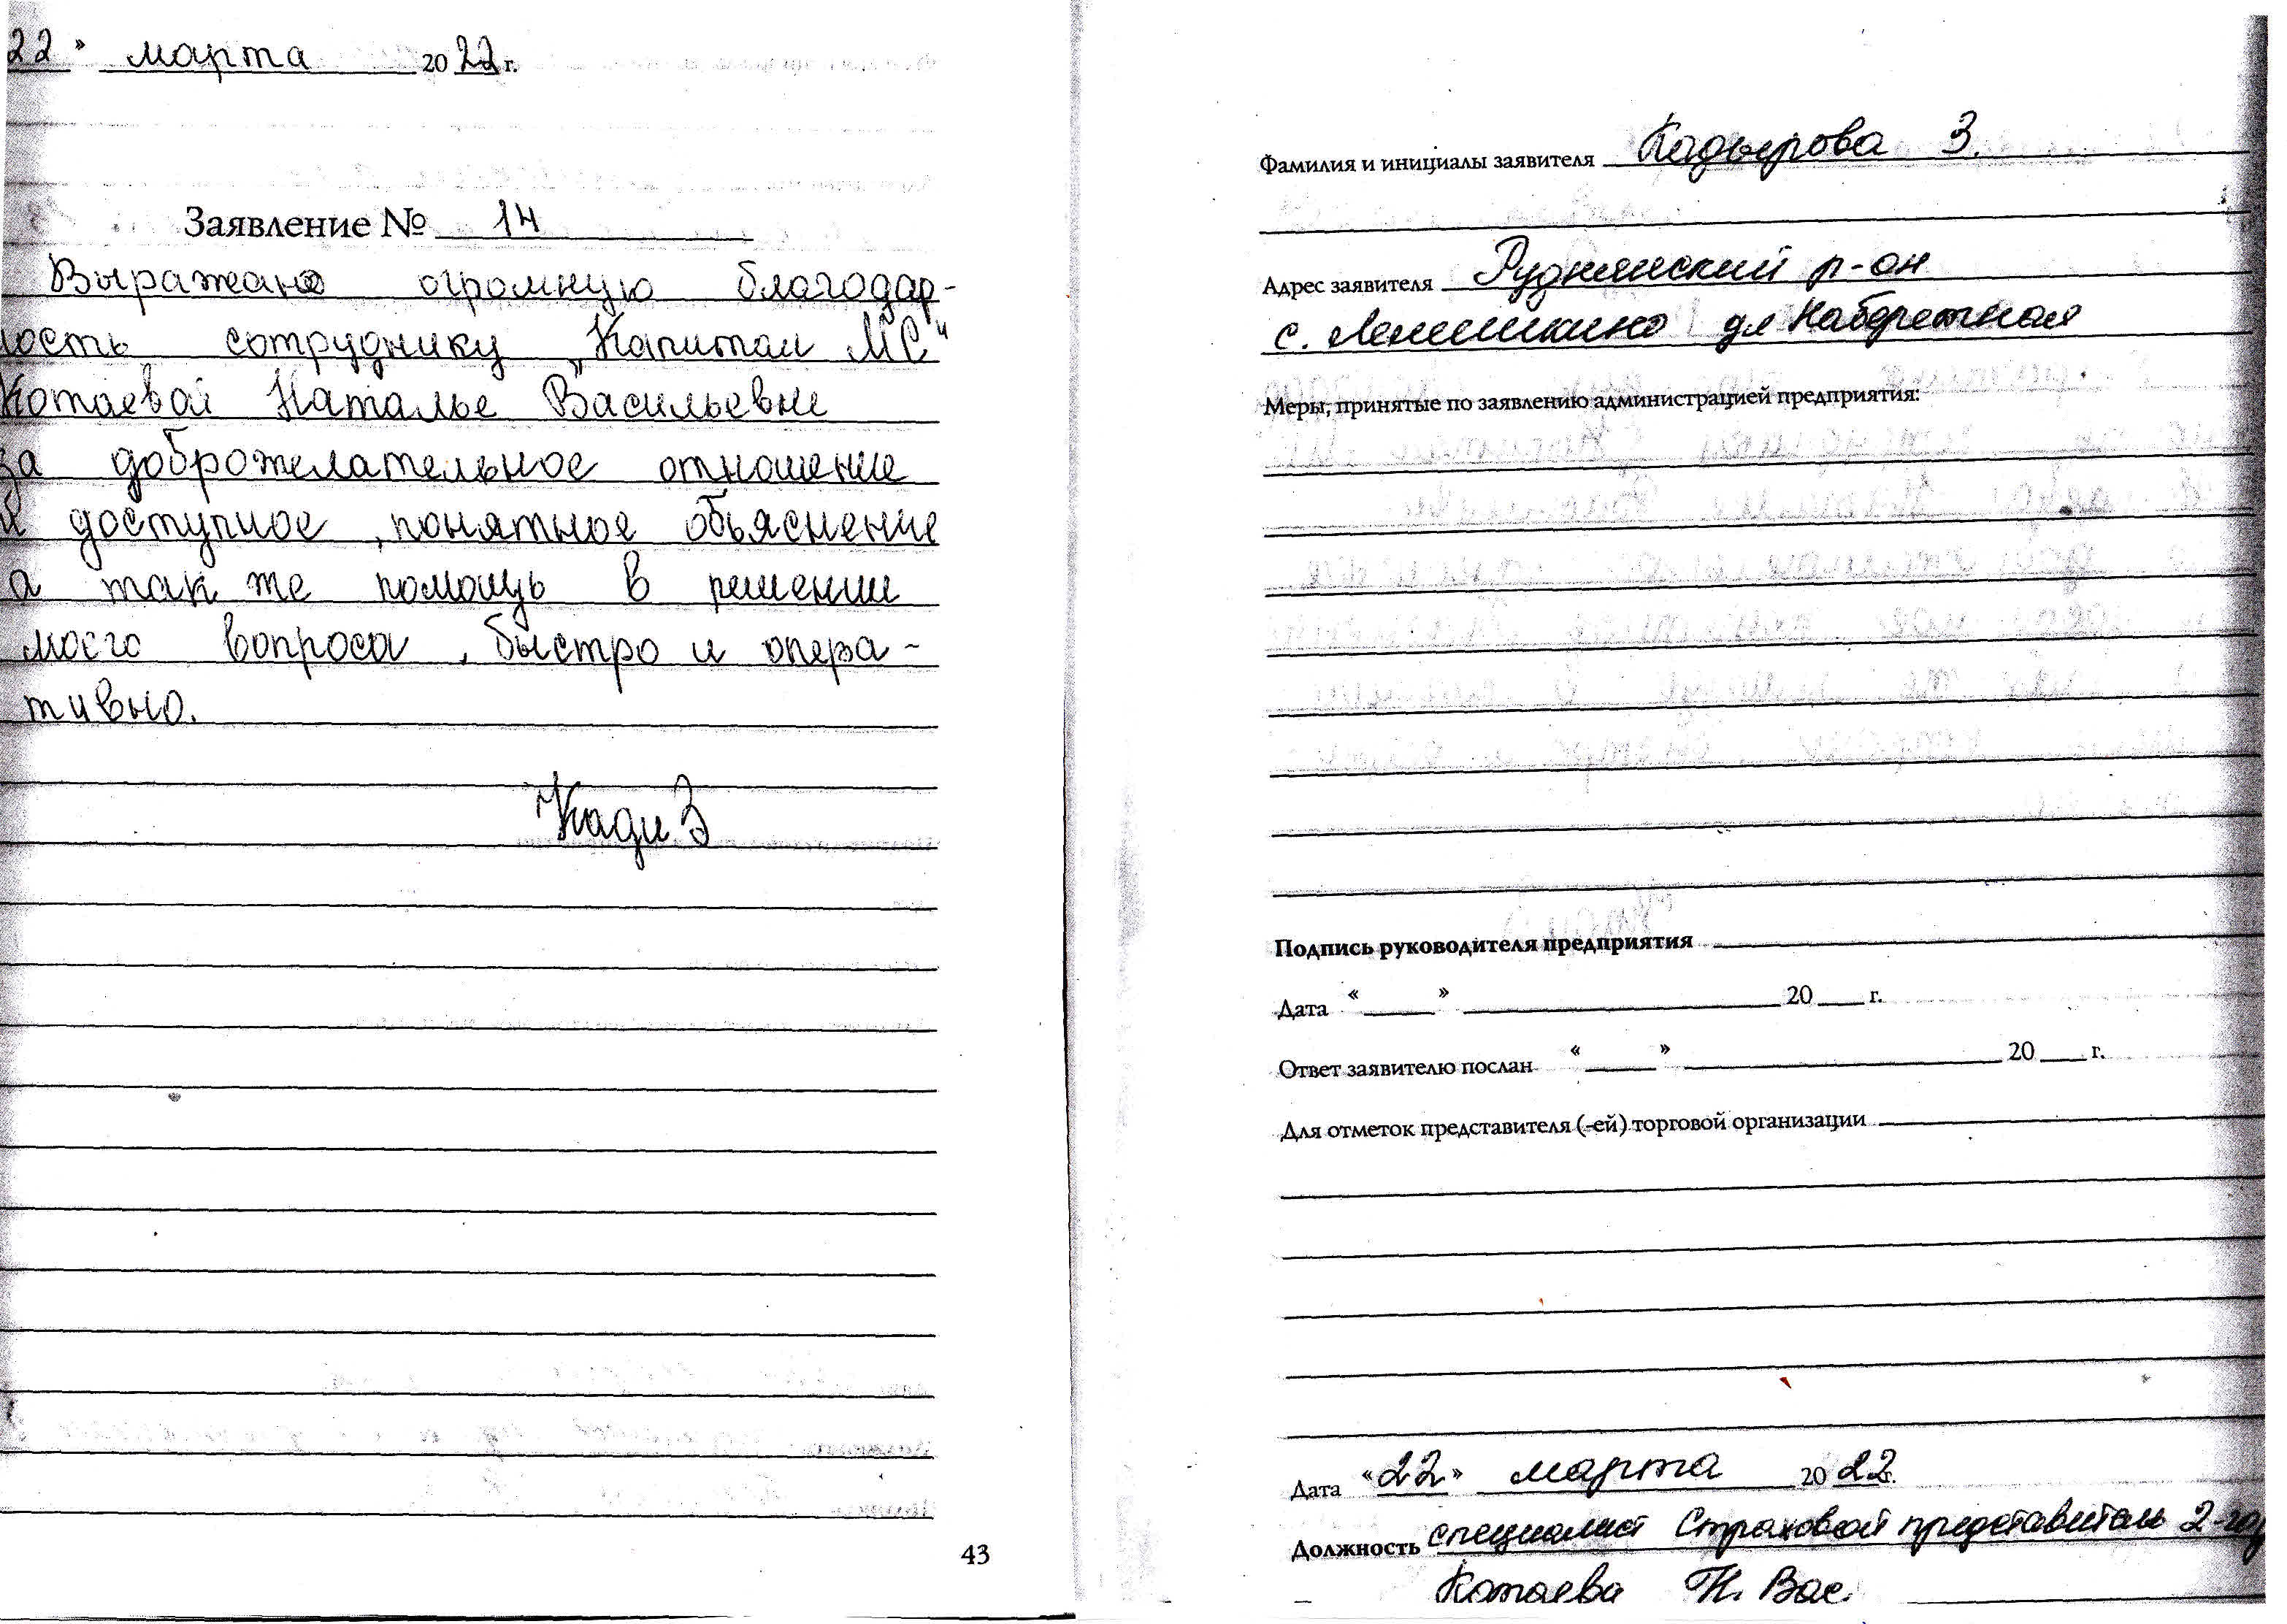 22 » марта 2022 г.
Заявление № 14
Выражаю огромную благодар-
ность сотруднику "Капитал МС"
Котаевой Наталье Васильевне
за доброжелательное отношение
и доступное, понятное объяснение
а так же помощь в решении
моего вопроса, быстро и опера-
тивно.
Кади З
43
Фамилия и инициалы заявителя Кадырова З.
Адрес заявителя Руднянский р-он
с. Лемешкино ул Набережная
Меры, принятые по заявлению администрацией предприятия:
Подпись руководителя предприятия
Дата « » 20 г.
Ответ заявителю послан « » 20 г.
Для отметок представителя (-ей) торговой организации
Дата «22» марта 2022г.
Должность специалист Страховой представитель 2-го
Котаева Н. Вас.